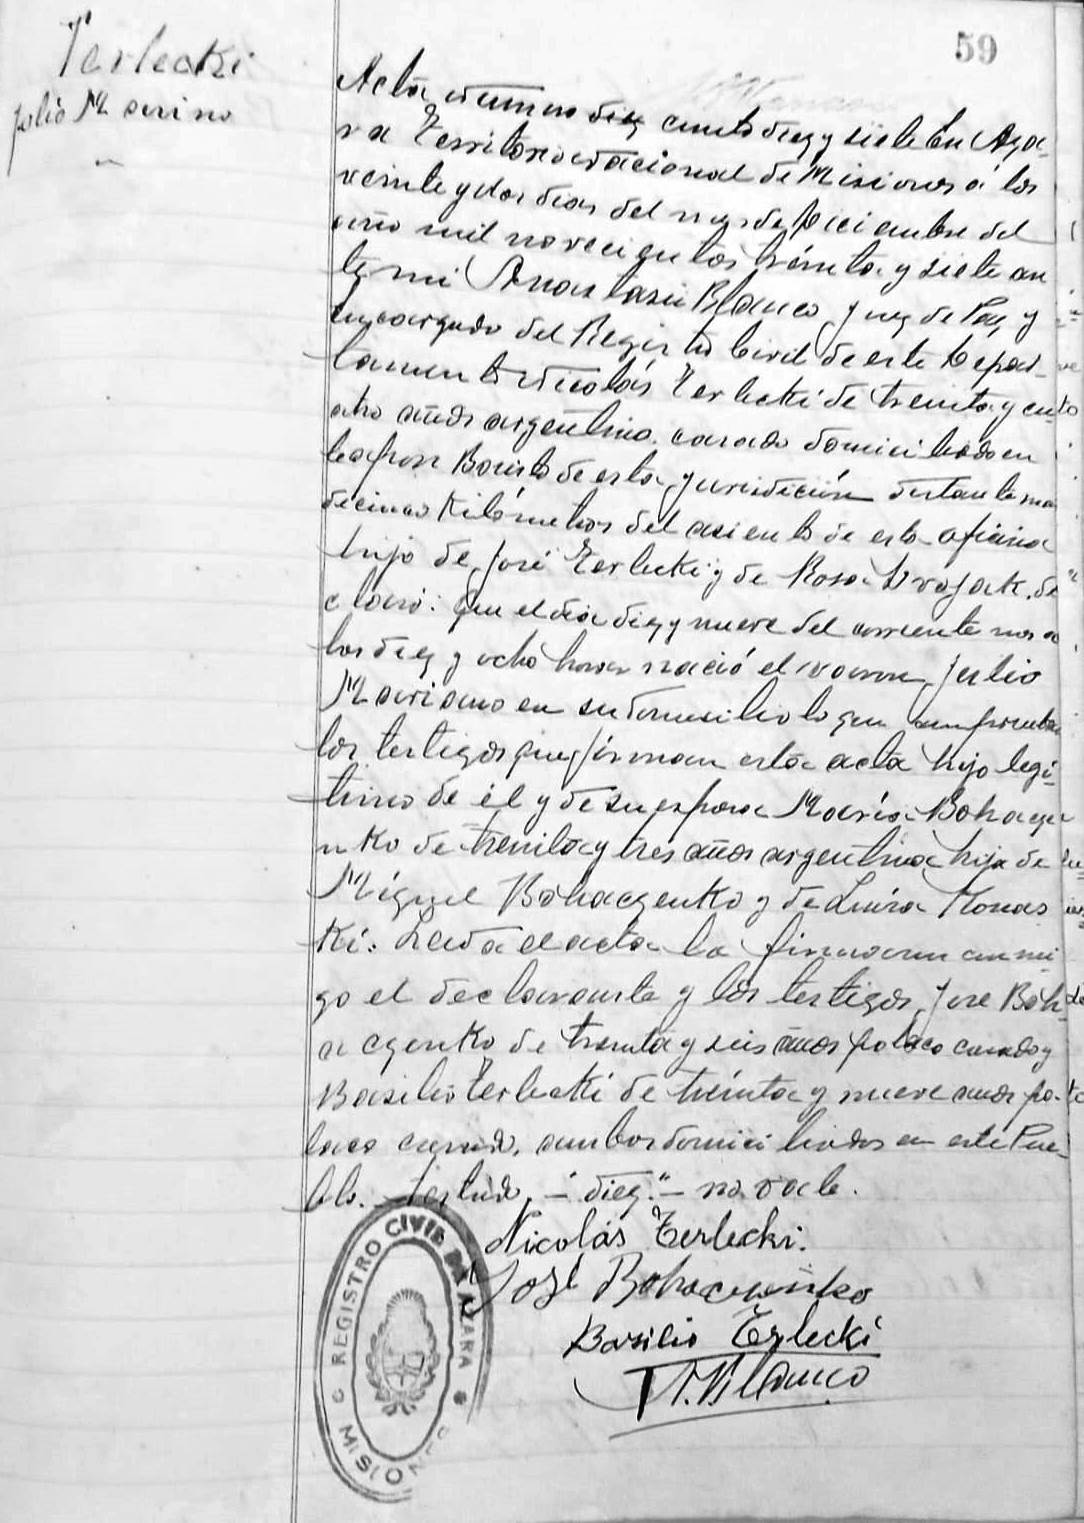 59
Terlecki
Julio Mariano
Acta número diez ciento diez y siete En Aza-
ra Territorio Nacional de Misiones á los
veinte y dos dias del mes de Diciembre del
año mil novecientos treinta y siete an
te mi Anastasio Blanco Juez de Paz y
Encargado del Registro Civil de este Depar-
tamento Nicolás Terlecki de treinta y cu
atro años argentino casado domiciliado en
de esta jurisdicción distante
de cinco Kilómetros del asiento de esta oficina
hijo de José Terlecki y de Rosa de
claró: Que el dia diez y nueve del corriente mes a
las diez y ocho horas nació el varon Julio
Mariano en su domicilio lo que comprueban
los testigos que firman esta acta hijo legi-
timo de él y de su esposa María Bohacze
nko de treinta y tres años argentina hija de
Miguel Bohaczenko y de Luisa Monas
ki. Leida el acta la firmaron conmi-
go el declarante y los testigos José Boh-
aczenko de treinta y seis años polaco casado y
Basilio Terlecki de treinta y nueve años po-
laco casado, ambos domiciliados en este Pue-
blo. Testado, –"diez"– no vale.
Nicolás Terlecki.
José Bohaczeńko
Basilio Terlecki
A. Blanco
REGISTRO CIVIL DE AZARA
MISIONES